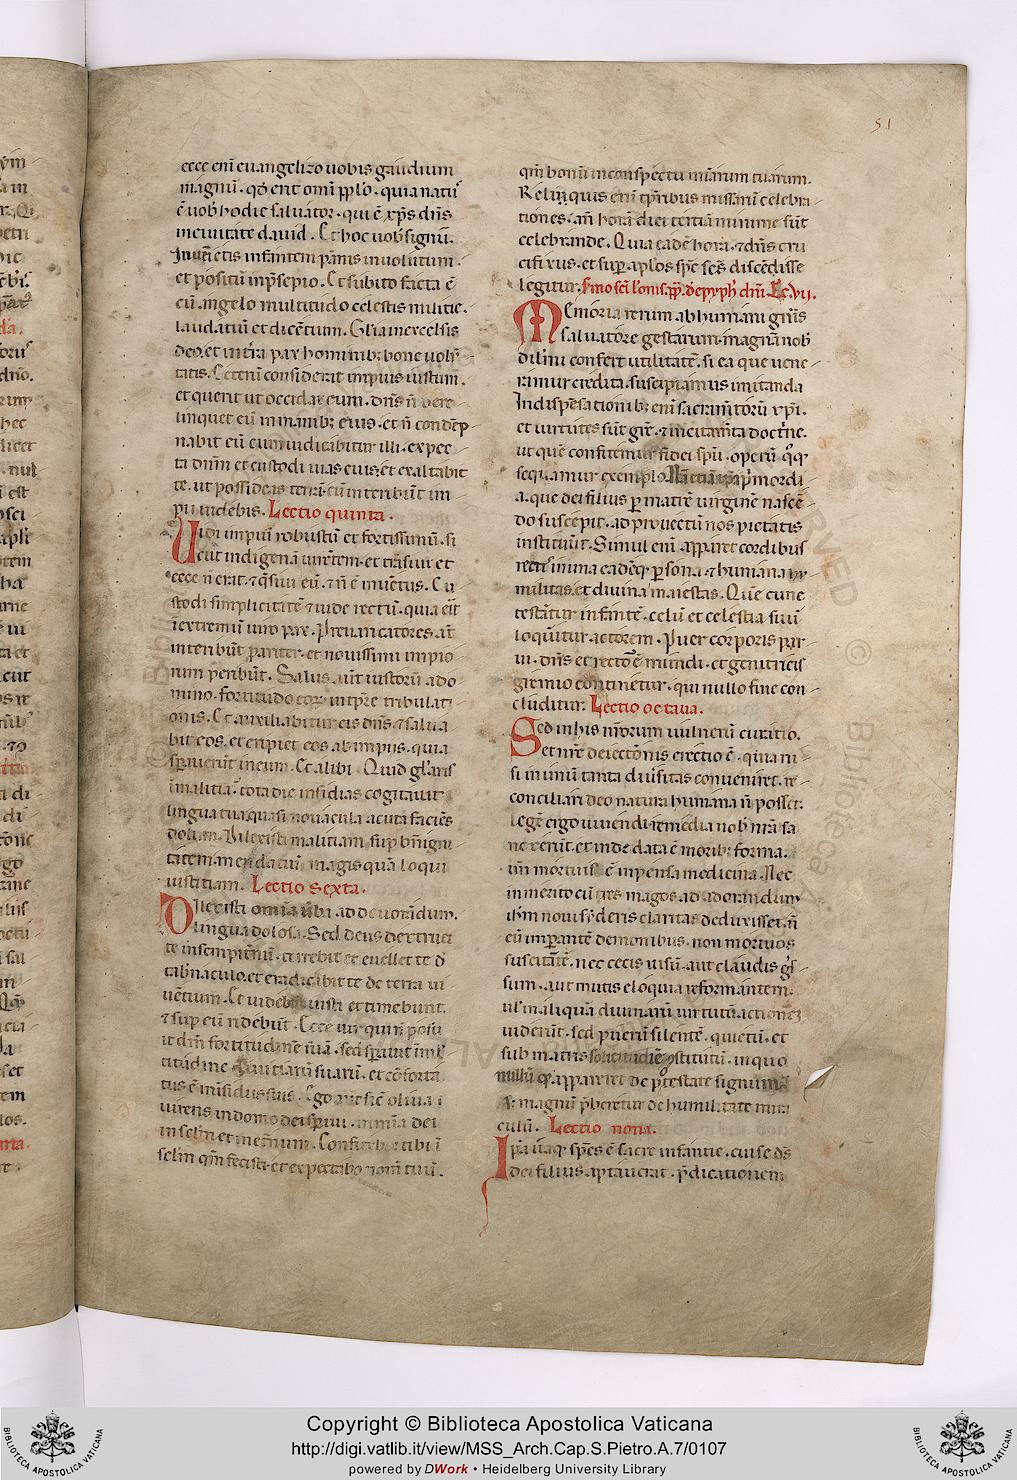 51
ecce eni euangelizo uobis gaudium
magnũ. qd̃ erit omi pplo. quia natus
ẽ uob hodie saluator. qui ẽ xp̃s dñs
inciuitate dauid. Et hoc uob signũ.
Inuẽietis infantem pãnis inuolutum.
et positũ inpsepio. Et subito facta ẽ
cũ angelo multitudo celestis militie.
laudatiũ et dicẽtium. Glia inexcelsis
deo. et in tr̃a pax hominib; bone uolũ
tatis. Ceteni considerat impius iustum.
et querit ut occidat eum. dñs ñ dere
linquet eũ in manib; eius. et ñ condẽp
nabit eũ cum iudicabitur illi. expec
ta dnm et custodi uias eius. et exaltabit
te. ut possideas terrã cũ interibũt im
pii uidebis. Lectio quinta.
Uidi impiũ robustũ et fortissimũ. si
cut indigenã uirẽtem. et trãsiui et
ecce ñ erat. ⁊ q̃siui eũ. ⁊ ñ ẽ inuẽtus. Cu
stodi simplicitatẽ ⁊ uide rectũ. quia erit
iextremũ uiro pax. Preuaricatores aũt
interibũt pariter. et nouissimi impio
rum peribũt. Salus aũt iustorũ a do
mino. fortitudo eor̃ intp̃re tribulati
onis. Et auxiliabitur eis dñs. ⁊ salua
bit eos. et eripiet eos ab impiis. quia
sperauerũt in eum. Et alibi. Quid gl'aris
imalitia. tota die insidias cogitauit
lingua tua quasi nouacula acuta faciẽs
dolum. Dilexisti malitiam. sup bñigni
tatem. mendatiũ. magis quã loqui
iustitiam. Lectio sexta.
Dilexisti omĩa uba. ad deuorãdum.
lingua dolosa. Sed deus dextruet
te insempitnũ. auellet te et euellet te d
tab'naculo. et eradicabit te de terra ui
uẽtium. Et uidebũt iusti et timebunt.
⁊ sup eũ ridebũt. Ecce uir qui ñ posu
it dm̃ fortitudinẽ suã. sed sperauit in ml'
titudine diuitiarũ suarũ. et cõforta
tus ẽ insidiis suis. Ego aut sic̃ oliua i
uirens in domo dei speraui. in mĩa dei
in sclm et in eternum. Confitebor tibi i
sclm qm̃ fecisti. et expectabo nom̃ tuũ.
qm̃ bonũ in conspectu sanctorum tuarum.
Reliq̃ quis eni tp̃ribus missarũ celebra
tiones. añ horã diei tertiam minime sũt
celebrande. Quia eadẽ hora. ⁊ dñs cru
cifixus. et sup aplos sp̃c scs̃ discẽdisse
legitur. Smo scĩ Leonis. pp̃. de epyph̃ dnĩ. Lc̃. vii.
Memoria rerum ab humani gñis
saluatore gestarum. magnã nob
dil'mi confert utilitatẽ. si ea que uene
ramur credita. suscipiamus imitanda
Indispẽsationib; eni sacramtorũ xp̃i.
et uirtutes sũt grẽ. ⁊ incitam̃ta doctrĩe.
ut quẽ confitemur fidei sp̃u. operũ q̃q
sequamur exemplo. Nã etiã ip̃a p'mordi
a. que dei filius p matrẽ uirginẽ nascẽ
do suscepit. ad prouectũ nos pietatis
instituũt. Simul eni apparet cordibus
rectis in una eadẽq̃ psona. ⁊ humana hu
militas. et diuina maiestas. Quẽ cune
testãtur infantẽ. celũ et celestia suũ
loquũtur actorem. Puer corporis par
ui. dñs et rector ẽ mundi. et genitricis
gremio continetur. qui nullo fine con
cluditur. Lectio octaua.
Sed in his nr̃orum uulnerũ curatio.
Et nr̃e deiectõnis erectio ẽ. quia ni
si in unũ tanta diu'sitas conueniret. re
conciliari deo natura humana ñ posset.
Legẽ ergo uiuendi remedia nob nr̃a sa
nxerũt. et inde data ẽ morib; forma.
uñ mortuis ẽ inpensa medicina. Nec
inmerito cũ tres magos ad adorandum
ihm noui sideris claritas deduxisset. ñ
eũ imperantẽ demonibus. non mortuos
suscitãtẽ. nec cecis uisũ. aut claudis gres
sum. aut mutis eloquia reformantem.
ul' in aliqua diuinarũ uirtutũ actione
uiderũt. sed puerũ silentẽ. quietũ. et
sub matris solicitudiẽ cstitutũ. in quo
nullũ q̃ appareret de ptestate signum
⁊ magnũ p̃beretur de humilitate mira
culũ. Lectio nona.
Ipa itaq spẽs ẽ sacre infantie. cui se ds̃
dei filius aptauerat. p̃dicationem
Copyright © Biblioteca Apostolica Vaticana
http://digi.vatlib.it/view/MSS_Arch.Cap.S.Pietro.A.7/0107
powered by DWork • Heidelberg University Library
BIBLIOTECA APOSTOLICA VATICANA
BIBLIOTECA APOSTOLICA VATICANA